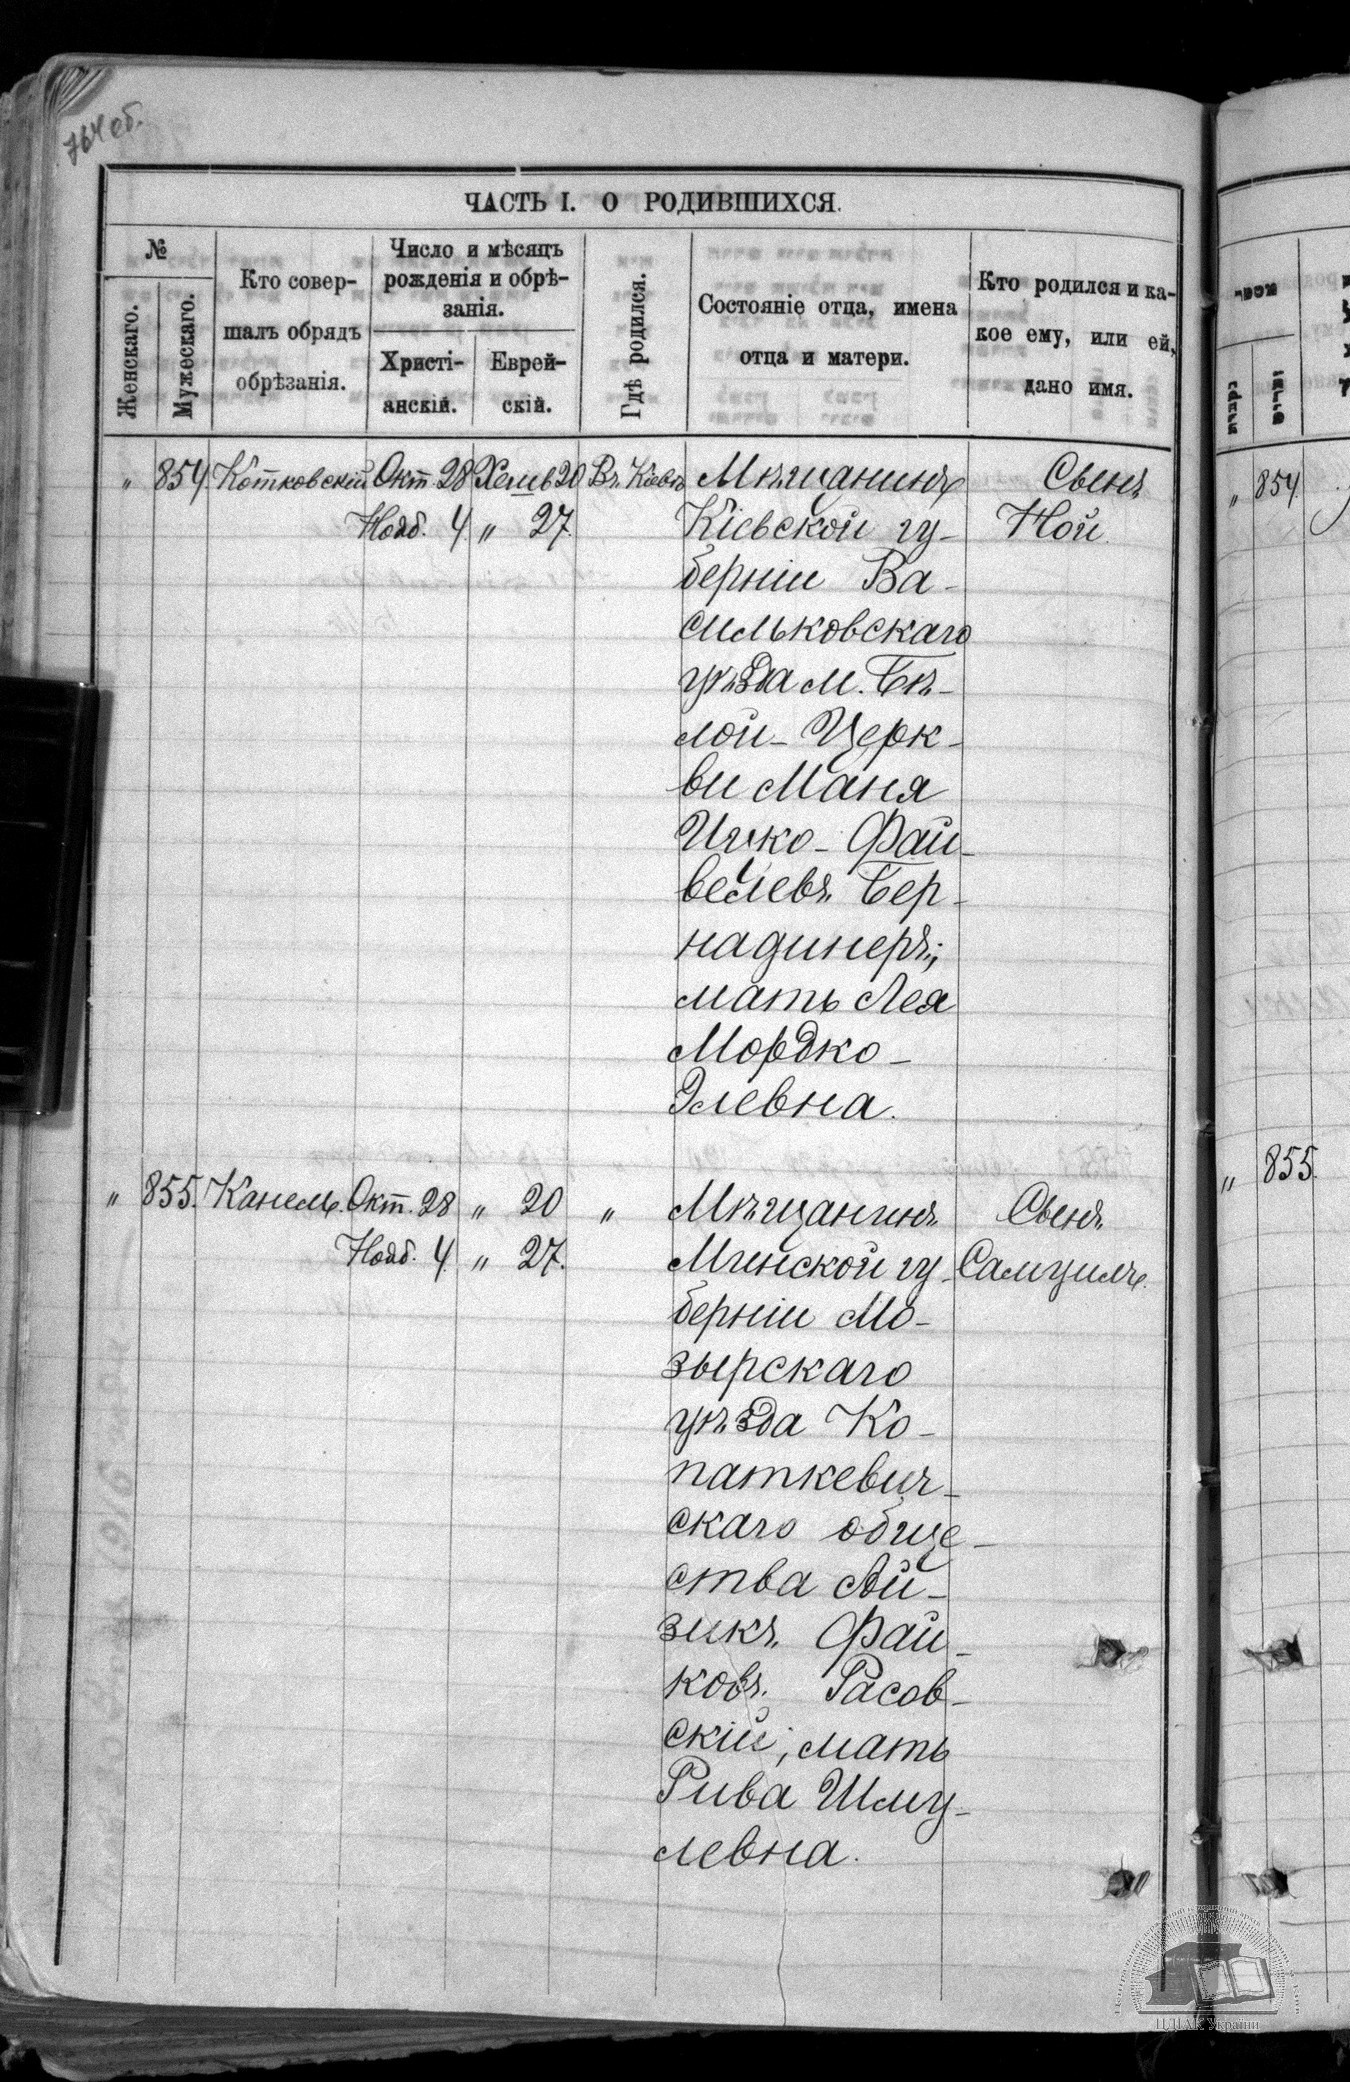 764 об.
ЧАСТЬ I. О РОДИВШИХСЯ.
№
Женскаго.
Мужескаго.
Кто совер-
шалъ обрядъ
обрѣзанія.
Число и мѣсяцъ
рожденія и обрѣ-
занія.
Христі-
анскій.
Еврей-
скій.
Гдѣ родился.
Состояніе отца, имена
отца и матери.
Кто родился и ка-
кое ему, или ей,
дано имя.
„ 854. Котковскій Окт. 28 Хешв 20 Въ Кіевѣ Мѣщанинъ Сынъ
Нояб. 4 „ 27. Кіевской гу- Ной.
берніи Ва-
сильковскаго
уѣзда м. Бѣ-
лой-Церк-
ви Маня
Ицко-Фай-
велевъ Бер-
надинеръ;
мать Лея
Мордко-
Элевна.
„ 855. Канель. Окт. 28 „ 20 „ Мѣщанинъ Сынъ
Нояб. 4 „ 27. Минской гу- Самуилъ.
берніи Мо-
зырскаго
уѣзда Ко-
паткевич-
скаго обще-
ства Ай-
зикъ Фай-
ковъ Расов-
скій; мать
Рива Шму-
левна.
„ 854.
„ 855.
ЦДІАК України